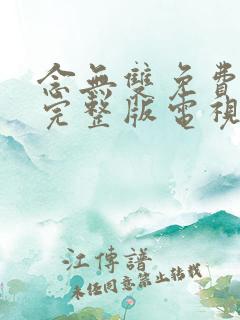 念無雙免費
完整版電視
江傳譜
未经同意禁止转载